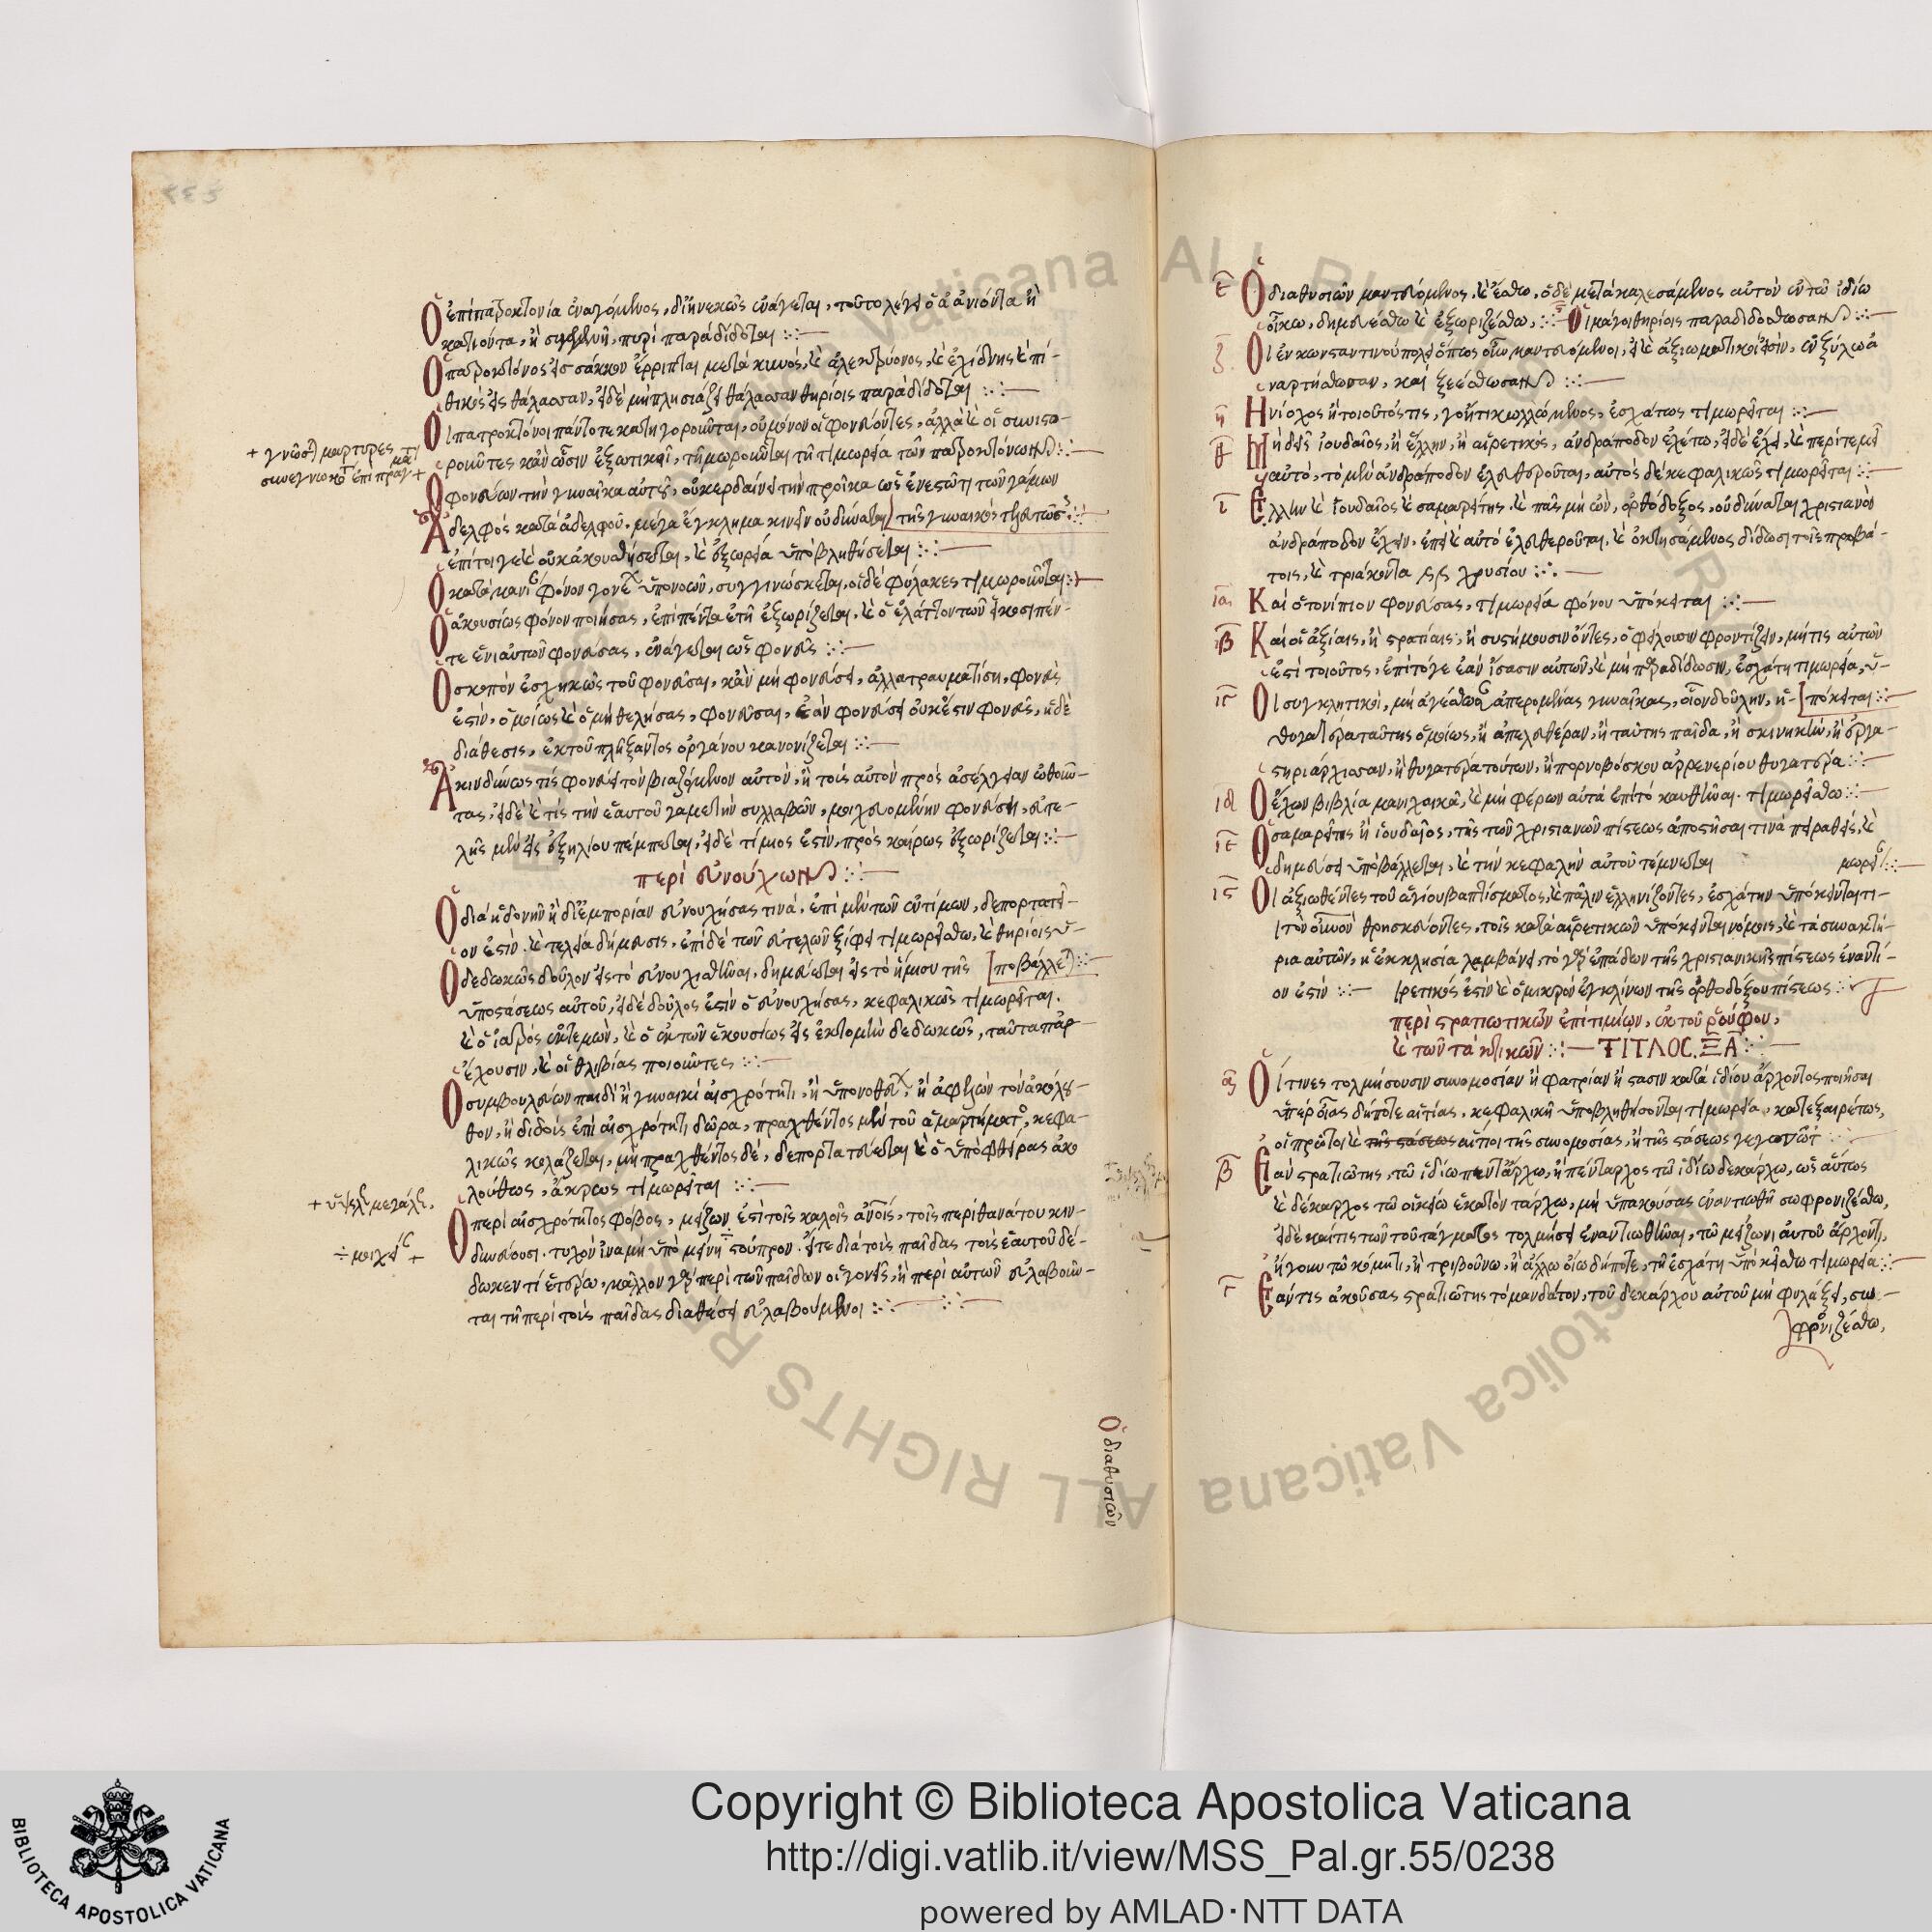 Ὁ ἐπὶ πατροκτονία ἐναγόμενος, διηνεκῶς ἐνάγεται, τοῦτο λέγει ὁ ἀνιόντα ἢ
κατιόντα, ἢ συγγενῆ, πυρὶ παραδίδοται
Ὁ πατροκτόνος εἰς σάκκον ἔρριπται μετὰ κυνὸς, καὶ ἀλεκτρύονος, καὶ ἐχίδνης καὶ πι-
θικὸς εἰς θάλασσαν, εἰ δὲ μὴ πλησιάζει θάλασσαν θηρίοις παραδίδοται
Οἱ πατροκτόνοι πάντοτε κατηγοροῦνται, οὐ μόνον οἱ φονεύοντες, ἀλλὰ καὶ οἱ συνιστο-
ροῦντες κἂν ὦσιν ἐξωτικοὶ, τιμωροῦνται τῇ τιμωρία τῶν πατροκτόνων
Ὁ φονεύων τὴν γυναῖκα αὐτοῦ, οὐ κερδαίνει τὴν προῖκα ὡς ἐνεστῶτι τῶν γάμων
Ἀδελφὸς κατὰ ἀδελφοῦ μέγα ἔγκλημα κινεῖν οὐ δύναται
ἐπίτοιγε καὶ οὐκ ἀκουσθήσεται, καὶ ἐξωρία ὑποβληθήσεται
συγγινώσκεται, οἱ δὲ φύλακες τιμωροῦνται
Ὁ ἀκουσίως φόνον ποιήσας, ἐπὶ πέντε ἔτη ἐξωρίζεται, καὶ ὁ ἐλάττον τῶν εἰκοσιπέν-
τε ἐνιαυτῶν φονεύσας, ἐνάγεται ὡς φονεὺς
Ὁ σκοπὸν ἐσχηκὼς τοῦ φονεῦσαι, κἂν μὴ φονεύσει, ἀλλὰ τραυματίση, φονεὺς
ἐστὶν, ὁμοίως καὶ ὁ μὴ θελήσας, φονεῦσαι, ἐὰν φονεύσει οὐκ ἔστιν φονεὺς, ἡ δὲ
διάθεσις, ἐκ τοῦ πλήξαντος ὀργάνου κανονίζεται
Ἀκινδύνως τίς φονεύει τὸν βιαζόμενον αὐτὸν, ἢ τοὺς αὐτὸν πρὸς ἀσέλγειαν ὠθοῦν-
τας, εἰ δὲ καὶ τίς τὴν ἑαυτοῦ γαμετὴν συλλαβὼν, μοιχευομένην φονεύση, εὐτε-
λὴς μὲν εἰς ἐξηλίου πέμπεται, εἰ δὲ τίμιος ἐστὶν, πρὸς καίρως ἐξωρίζεται
περὶ εὐνούχων
Ὁ διὰ ἡδονὴν ἢ δι' ἐμπορίαν εὐνουχήσας τινά, ἐπὶ μὲν τῶν ἐντίμων, δεπορτατεί-
ον ἐστὶν, καὶ τελεία δήμευσις, ἐπὶ δὲ τῶν εὐτελῶν ξίφει τιμωρείσθω, καὶ θηρίοις ὑ-
ποβάλλεται
Ὁ δεδωκὼς δοῦλον εἰς τὸ εὐνουχισθῆναι, δημεύεται εἰς τὸ ἥμισυ τῆς
ὑποστάσεως αὐτοῦ, εἰ δὲ δοῦλος ἐστὶν ὁ εὐνουχήσας, κεφαλικῶς τιμωρεῖται.
καὶ ὁ ἰατρὸς ἐκτεμὼν, καὶ ὁ ἐκ τῶν ἑκουσίως εἰς ἐκτομὴν δεδωκὼς, ταῦτα παρ-
έχουσιν, καὶ οἱ θλιβίας ποιοῦντες
Ὁ συμβουλεύων παιδὶ ἢ γυναικὶ αἰσχρότητι, ἢ ὑπονοθεύων, ἢ ἀφελκὼν τὸν ἀκόλου-
θον, ἢ διδοὺς ἐπὶ αἰσχρότητι δῶρα, πραχθέντος μὲν τοῦ ἁμαρτήματος, κεφα-
λικῶς κολάζεται, μὴ πραχθέντος δὲ, δεπορτατεύεται καὶ ὁ ὑποφθείρας ἀκο
λούθως, ἄκρως τιμωρεῖται
Ὁ περὶ αἰσχρότητος φόβος, μείζων ἐστὶ τοῖς καλοῖς ἀνοις, τοῖς περὶ θανάτου κιν-
δυνεύουσι
δωκεν τὶ ἑτέρω, κάλλον γὰρ περὶ τῶν παίδων οἱ γονεῖς, ἢ περὶ αὐτῶν εὐλαβοῦν-
ται τῇ περὶ τοὺς παῖδας διαθέσει εὐλαβούμενοι
Ὁ διαθυσιῶν
ε Ὁ διαθυσιῶν μαντευόμενος, καιέσθω, ὁ δὲ μετακαλεσάμενος αὐτὸν ἐν τῶ ἰδίω
οἴκω, δημευέσθω καὶ ἐξωριζέσθω, Οἱ μάγοι θηρίοις παραδιδοσθωσαν
ζ Οἱ ἐν κωνσταντινουπόλει ὅπως οὖν μαντευόμενοι, εἰ καὶ ἀξιωματικοὶ εἰσὶν, ἐν ξύλω ἀ
ναρτήσθωσαν, καὶ ξεέσθωσαν
η Ἡνίοχος ἢ τοιοῦτός τις, γοητικωλλώμενος, ἐσχάτως τιμωρεῖται
θ Μηδεὶς ἰουδαῖος, ἢ ἕλλην, ἢ αἱρετικὸς, ἀνδράποδον ἐχέτω, εἰ δὲ ἔχει, καὶ περιτεμεῖ
αὐτὸ, τὸ μὲν ἀνδράποδον ἐλευθεροῦται, αὐτὸς δὲ κεφαλικῶς τιμωρεῖται
ι Ἕλλην καὶ Ἰουδαῖος καὶ σαμαρείτης, καὶ πᾶς μὴ ὢν, ὀρθόδοξος, οὐ δύναται χριστιανὸν
ἀνδράποδον ἔχειν, ἐπεὶ καὶ αὐτὸ ἐλευθεροῦται, καὶ ὁ κτησάμενος δίδωσι τοῖς προβά-
τοις, καὶ τριάκοντα χρυσίου
ια Καὶ ὁ τὸ νίπιον φονεύσας, τιμωρία φόνου ὑπόκειται
ιβ Καὶ οἱ ἀξίαις, ἢ στρατίαις, ἢ συστήμουσιν ὄντες, ὀφείλουσιν φροντίζειν, μήτις αὐτῶν
ἐστὶ τοιοῦτος, ἐπίτογε ἐὰν ἴσασιν αὐτῶν, καὶ μὴ παραδίδωσιν, ἐσχάτη τιμωρία, ὑ-
πόκειται
ιγ Οἱ συγκλητικοὶ, μὴ ἀγέσθωσαν ἀπερομένας γυναῖκας, οἷον δούλην, ἢ
θυγατέρα ταύτης ὁμοίως, ἢ ἀπελευθέραν, ἢ ταύτης παῖδα, ἢ σκηνικὴν, ἢ ἐργα-
στηριάρχισσαν, ἢ θυγατέρα τούτων, ἢ πορνοβόσκου θυγατέρα
ιδ Ὁ ἔχων βιβλία μανιχαικὰ, καὶ μὴ φέρων αὐτὰ ἐπὶ τὸ καυθῆναι τιμωρείσθω
ιε Ὁ σαμαρείτης ἢ ἰουδαῖος, τῆς τῶν χριστιανῶν πίστεως ἀποστῆσαι τινὰ πειραθεὶς, καὶ
δημεύσει ὑποβάλλεται, καὶ τὴν κεφαλὴν αὐτοῦ τέμνεται
ις Οἱ ἀξιωθέντες τοῦ ἁγίου βαπτίσματος, καὶ πάλιν ἑλληνίζοντες, ἐσχάτην ὑπόκεινται τι-
μωρείαν
θρησκεύοντες, τοῖς κατὰ αἱρετικῶν ὑπόκεινται νόμοις, καὶ τὰ συνακτή-
ρια αὐτῶν, ἡ ἐκκλησία λαμβάνει, τὸ γὰρ ἐπάδων τῆς χριστιανικῆς πίστεως ἐναντί-
ον ἐστὶν αἱρετικὸς ἐστὶν καὶ ὁ μικρὸν ἐγκλίνων τῆς ὀρθοδόξου πίστεως
περὶ στρατιωτικῶν ἐπιτιμίων, ἐκ τοῦ ῥούφου,
καὶ τῶν τακτικῶν ΤΙΤΛΟΣ ΞΑ
α Οἵτινες τολμήσουσιν συνομοσίαν ἢ φατρίαν ἢ στάσιν κατὰ ἰδίου ἄρχοντος ποιῆσαι
ὑπὲρ οἵας δήποτε αἰτίας, κεφαλικῇ ὑποβληθήσονται τιμωρία, κατεξαιρέτως,
οἱ πρῶτοι καὶ τῆς στάσεως αἴτιοι τῆς συνομοσίας, ἢ τῆς στάσεως γεγονῶτες
β Ἐὰν στρατιώτης, τῶ ἰδίω πεντάρχω, ἢ πένταρχος τῶ ἰδίω δεκάρχω, ὡσαύτως
καὶ δέκαρχος τῶ οἰκείω ἑκατοντάρχω, μὴ ὑπακούσας ἐναντιωθῇ σωφρονιζέσθω,
εἰ δὲ καί τις τῶν τοῦ τάγματος τολμήσει ἐναντιωθῆναι, τῶ μείζωνι αὐτοῦ ἄρχοντι,
ἤγουν τῶ κόμητι, ἢ τριβούνω, ἢ ἄλλω οἵω δήποτε, τῇ ἐσχάτη ὑποκείσθω τιμωρία
γ Ἐάν τις ἀκούσας στρατιώτης τὸ μανδάτον, τοῦ δεκάρχου αὐτοῦ μὴ φυλάξει, σω-
φρονιζέσθω,
Copyright © Biblioteca Apostolica Vaticana
http://digi.vatlib.it/view/MSS_Pal.gr.55/0238
powered by AMLAD·NTT DATA
BIBLIOTECA APOSTOLICA VATICANA